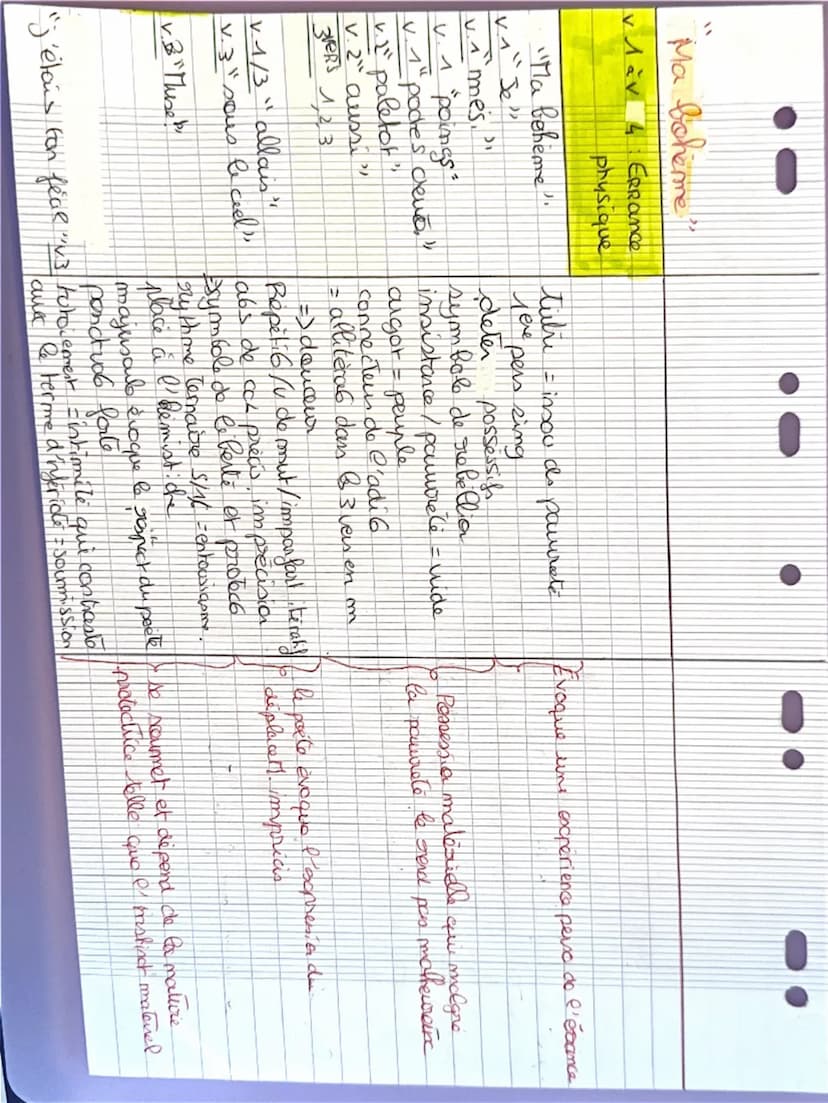 "Ma bohème"
v 1 à v 4 : ERRANCE
physique
"Ma bohème"
v.1 "Je"
v.1 "mes"
v.1 "poings"
v.1 "poches crevées"
v.2 "paletot"
v.2 "aussi"
VERS 1,2,3
v.1/3 "allais"
v.3 "sous le ciel"
v.3 "Muse!"
"j'étais ton féal" v3
titre = insou de pauvreté
1ère pers sing
déter possessifs
symbole de rébellion
insistance / pauvreté = vide
argot = peuple
connecteur de l'adi6
= allitéra6 dans les 3 vers en m
=> douceur
Répéti6 /v de mvt / imparfait itératif
abs de cct précis, imprécision
=> symbole de liberté et protec6
rythme ternaire = entousiasme.
placé à l'hémistiche
majuscule évoque le respect du poète
ponctua6 forte
tutoiement = intimité qui contraste
avec le terme d'infériorité = soumission
Évoque une expérience perso de l'errance
Possessio matérielle qui malgré
la pauvreté le rend pas malheureux
le poète évoque l'expressio du
déplacmt imprécis
se soumet et dépend de la nature
protectrice telle que l'instinct maternel